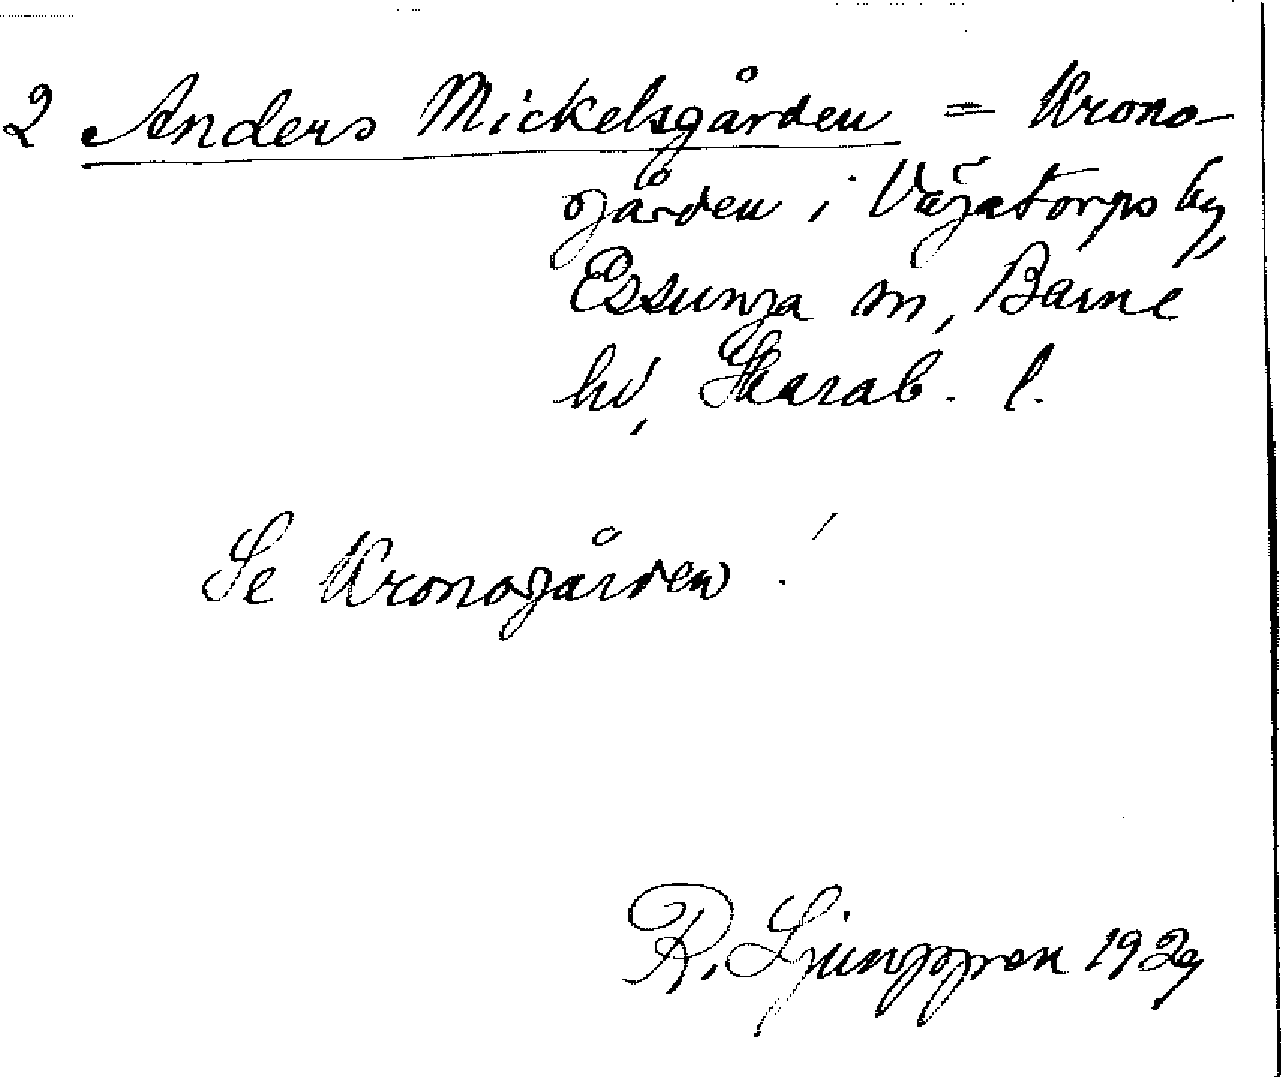 2 Anders Mickelsgården = Krono-
gården i Väjatorps by,
Essunga sn, Barne
hd, Skarab. l.
Se Kronogården!
R. Ljunggren 1929